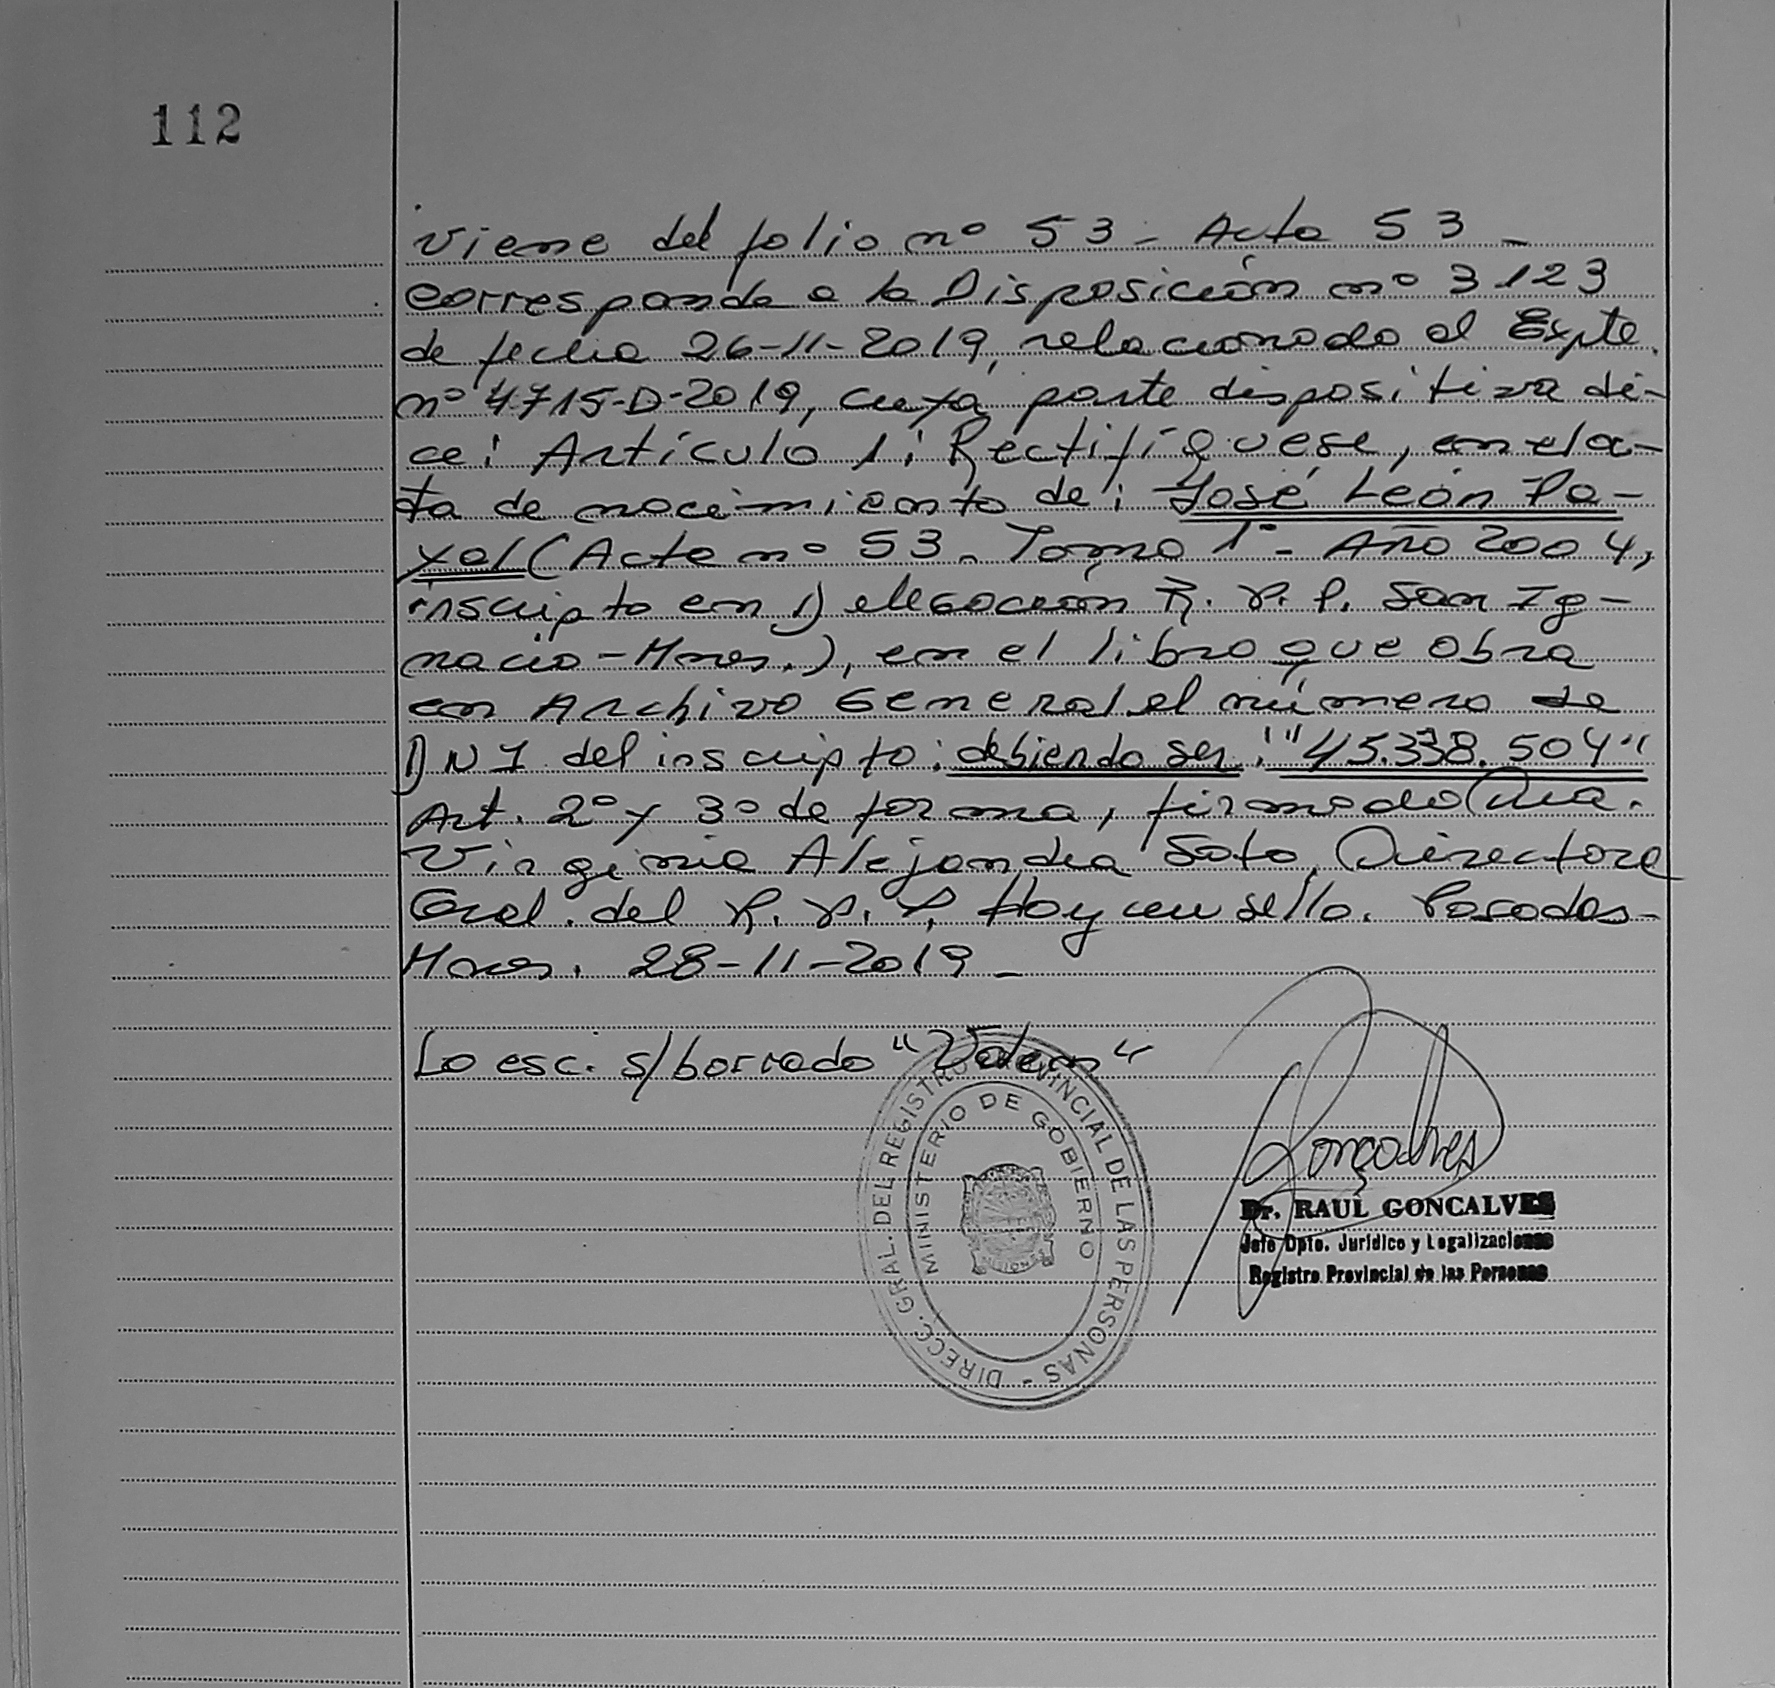 112
Viene del folio nº 53 - Acta 53 -
corresponde a la Disposición nº 3123
de fecha 26-11-2019, relacionado al Expte.
nº 4715-D-2019, cuya parte dispositiva di-
ce: Artículo 1: Rectifíquese, en el ac-
ta de nacimiento de: José León Pa-
yel (Acta nº 53 - Tomo 1º - Año 2004,
inscripto en Delegación R. P. P. San Ig-
nacio - Mnes.), en el libro que obra
en Archivo General el número de
DNI del inscripto: debiendo ser: "45.338.504"
Art. 2º y 3º de forma, firmado Dra.
Virginia Alejandra Soto, Directora
Gral. del R. P. P. Hay un sello. Posadas -
Mnes. 28-11-2019 -
Lo esc. s/borrado "Valen"
DIRECC. GRAL. DEL REGISTRO PROVINCIAL DE LAS PERSONAS -
MINISTERIO DE GOBIERNO
Goncalves
Dr. RAUL GONCALVES
Jefe Dpto. Jurídico y Legalizaciones
Registro Provincial de las Personas